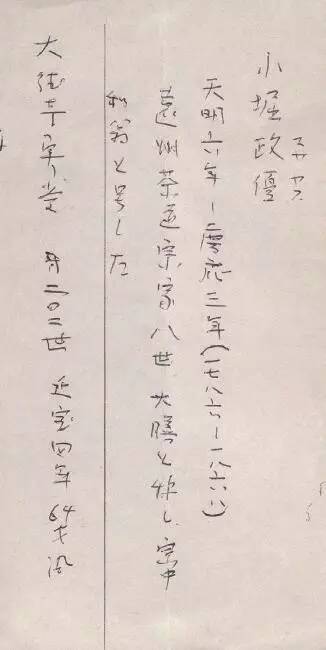 小堀政優
天明六年ー慶応三年(一七八六ー一八六八)
遠州茶道宗家八世 大膳と称し、宗中
和翁と号した
大徳寺実堂 第二〇二世 延宝四年 64才没